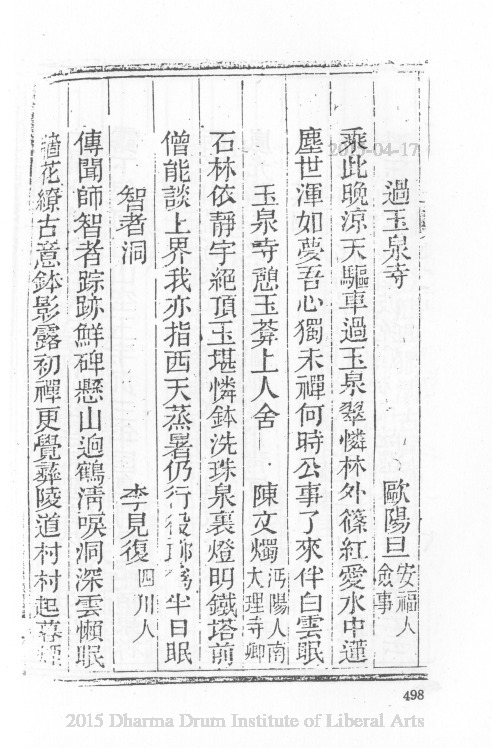 過玉泉寺 歐陽旦 安福人僉事
乘此晚涼天驅車過玉泉翠憐林外篠紅愛水中蓮
塵世渾如夢吾心獨未禪何時公事了來伴白雲眠
玉泉寺憩玉菴上人舍 陳文燭 沔陽人南大理寺卿
石林依靜宇絕頂玉堪憐鉢洗珠泉裏燈明鐵塔前
僧能談上界我亦指西天蒸暑仍行役 半日眠
智者洞 李見復 四川人
傳聞師智者踪跡鮮碑懸山逈鶴淸唳洞深雲懶眠
花繚古意鉢影露初禪更覺彞陵道村村起暮
498
2015-04-17
2015 Dharma Drum Institute of Liberal Arts